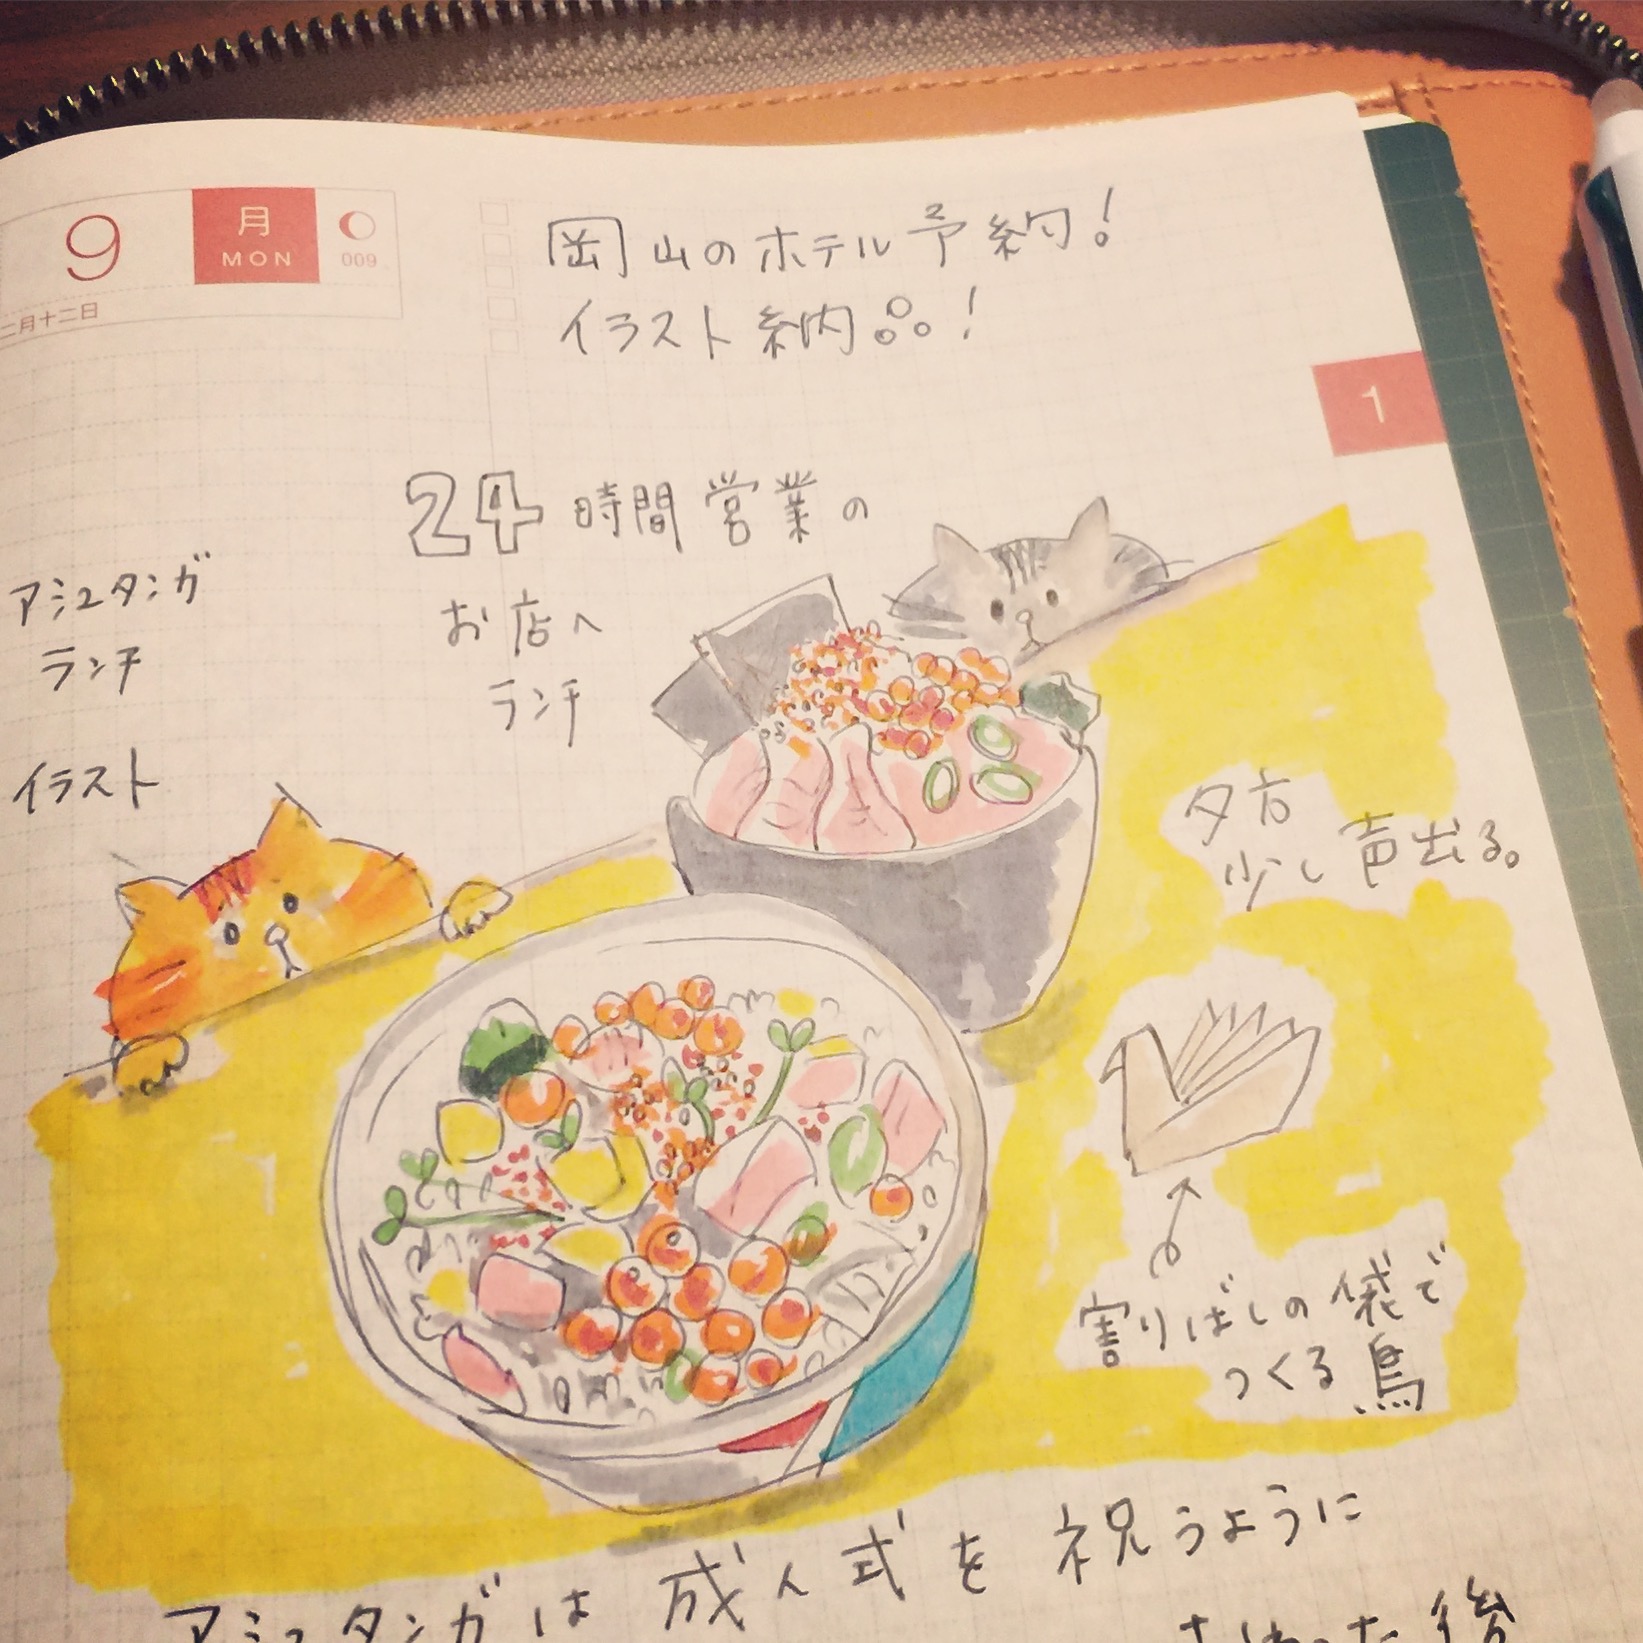 9
月
MON
009
二月十二日
岡山のホテル予約!
イラスト納品!
1
24時間営業の
お店へ
ランチ
アシュタンガ
ランチ
イラスト
夕方
少し声出る。
割りばしの袋で
つくる鳥
アシュタンガは成人式を祝うように
た後